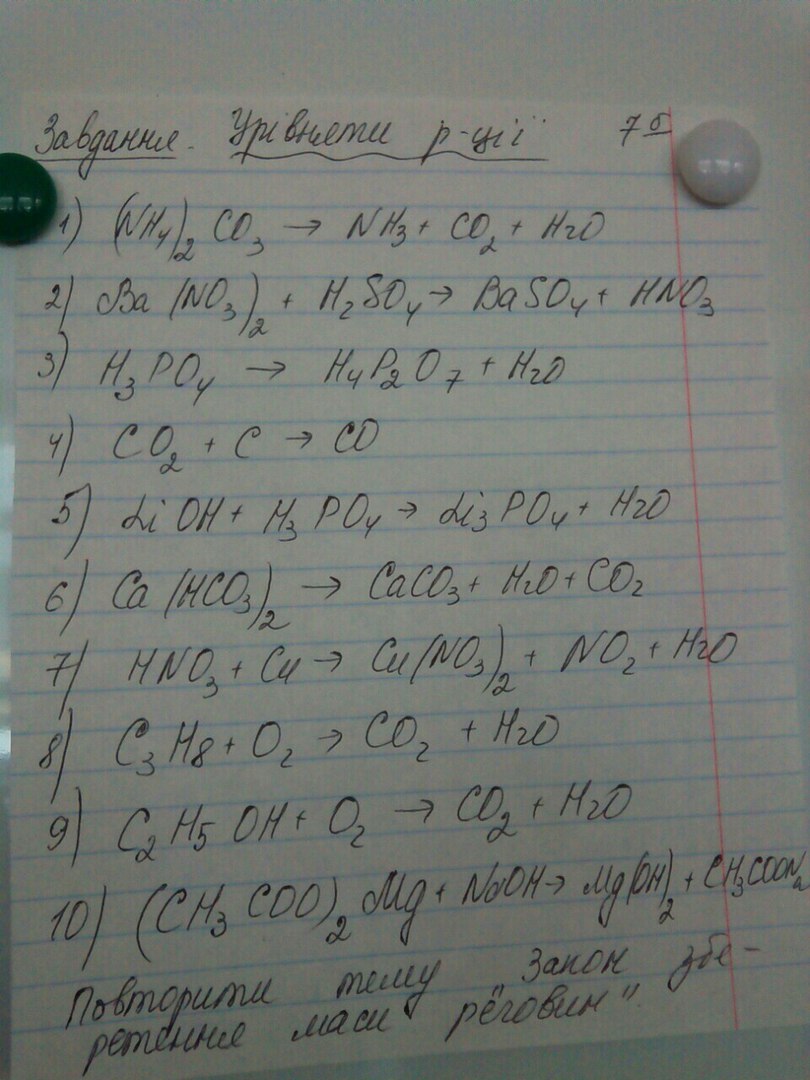 Завдання. Урівняти р-ції 7б
1) (NH₄)₂CO₃ → NH₃ + CO₂ + H₂O
2) Ba(NO₃)₂ + H₂SO₄ → BaSO₄ + HNO₃
3) H₃PO₄ → H₄P₂O₇ + H₂O
4) CO₂ + C → CO
5) LiOH + H₃PO₄ → Li₃PO₄ + H₂O
6) Ca(HCO₃)₂ → CaCO₃ + H₂O + CO₂
7) HNO₃ + Cu → Cu(NO₃)₂ + NO₂ + H₂O
8) C₃H₈ + O₂ → CO₂ + H₂O
9) C₂H₅OH + O₂ → CO₂ + H₂O
10) (CH₃COO)₂Mg + NaOH → Mg(OH)₂ + CH₃COONa
Повторити тему "Закон збе-
реження маси речовин".